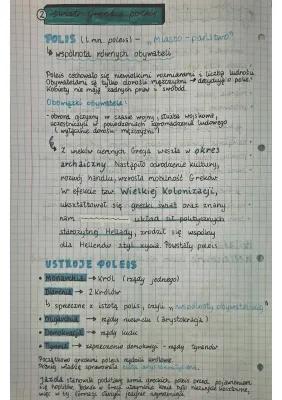 ② Świat greckich poleis
POLIS (l. mn. poleis) - „Miasto - państwo"
↳ wspólnota równych obywateli
Poleis cechowało się niewielkimi rozmiarami i liczbą ludności
Obywatelami są tylko dorośli mężczyźni → decydują o polis!
Kobiety nie mają żadnych praw i swobód.
Obowiązki obywatela:
- obrona ojczyzny w czasie wojny, służba wojskowa,
uczestniczyli w posiedzeniach zgromadzenia ludowego
(wyłącznie dorośli mężczyźni)
Z wieków ciemnych Grecja weszła w okres
archaiczny. Nastąpiło odrodzenie kultury,
rozwój handlu, wzrosła mobilność Greków
W efekcie tzw. Wielkiej Kolonizacji,
ukształtował się grecki świat oraz znany
nam układ sił politycznych
starożytnej Hellady, zrodził się wspólny
dla Hellenów styl życia. Powstały poleis
USTROJE POLEIS
• Monarchia → Król (rządy jednego)
→ 2 królów
↳ sprzeczne z istotą polis, czyli „wspólnoty obywatelskiej"
• Oligarchia → rządy niewielu (arystokracja)
• Demokracja → rządy ludu
• Tyrania → zaprzeczenie demokracji - rządy tyranów
Początkowo greckimi poleis rządzili królowie.
Później władzę sprawowała
Jazda stanowiła podstawę armii greckich poleis przed pojawieniem
się hoplitów. Jednak w Grecji utrzymanie konia było niezwykle kosztowne,
więc w tej formacji służyli jedynie najzamożniejsi.